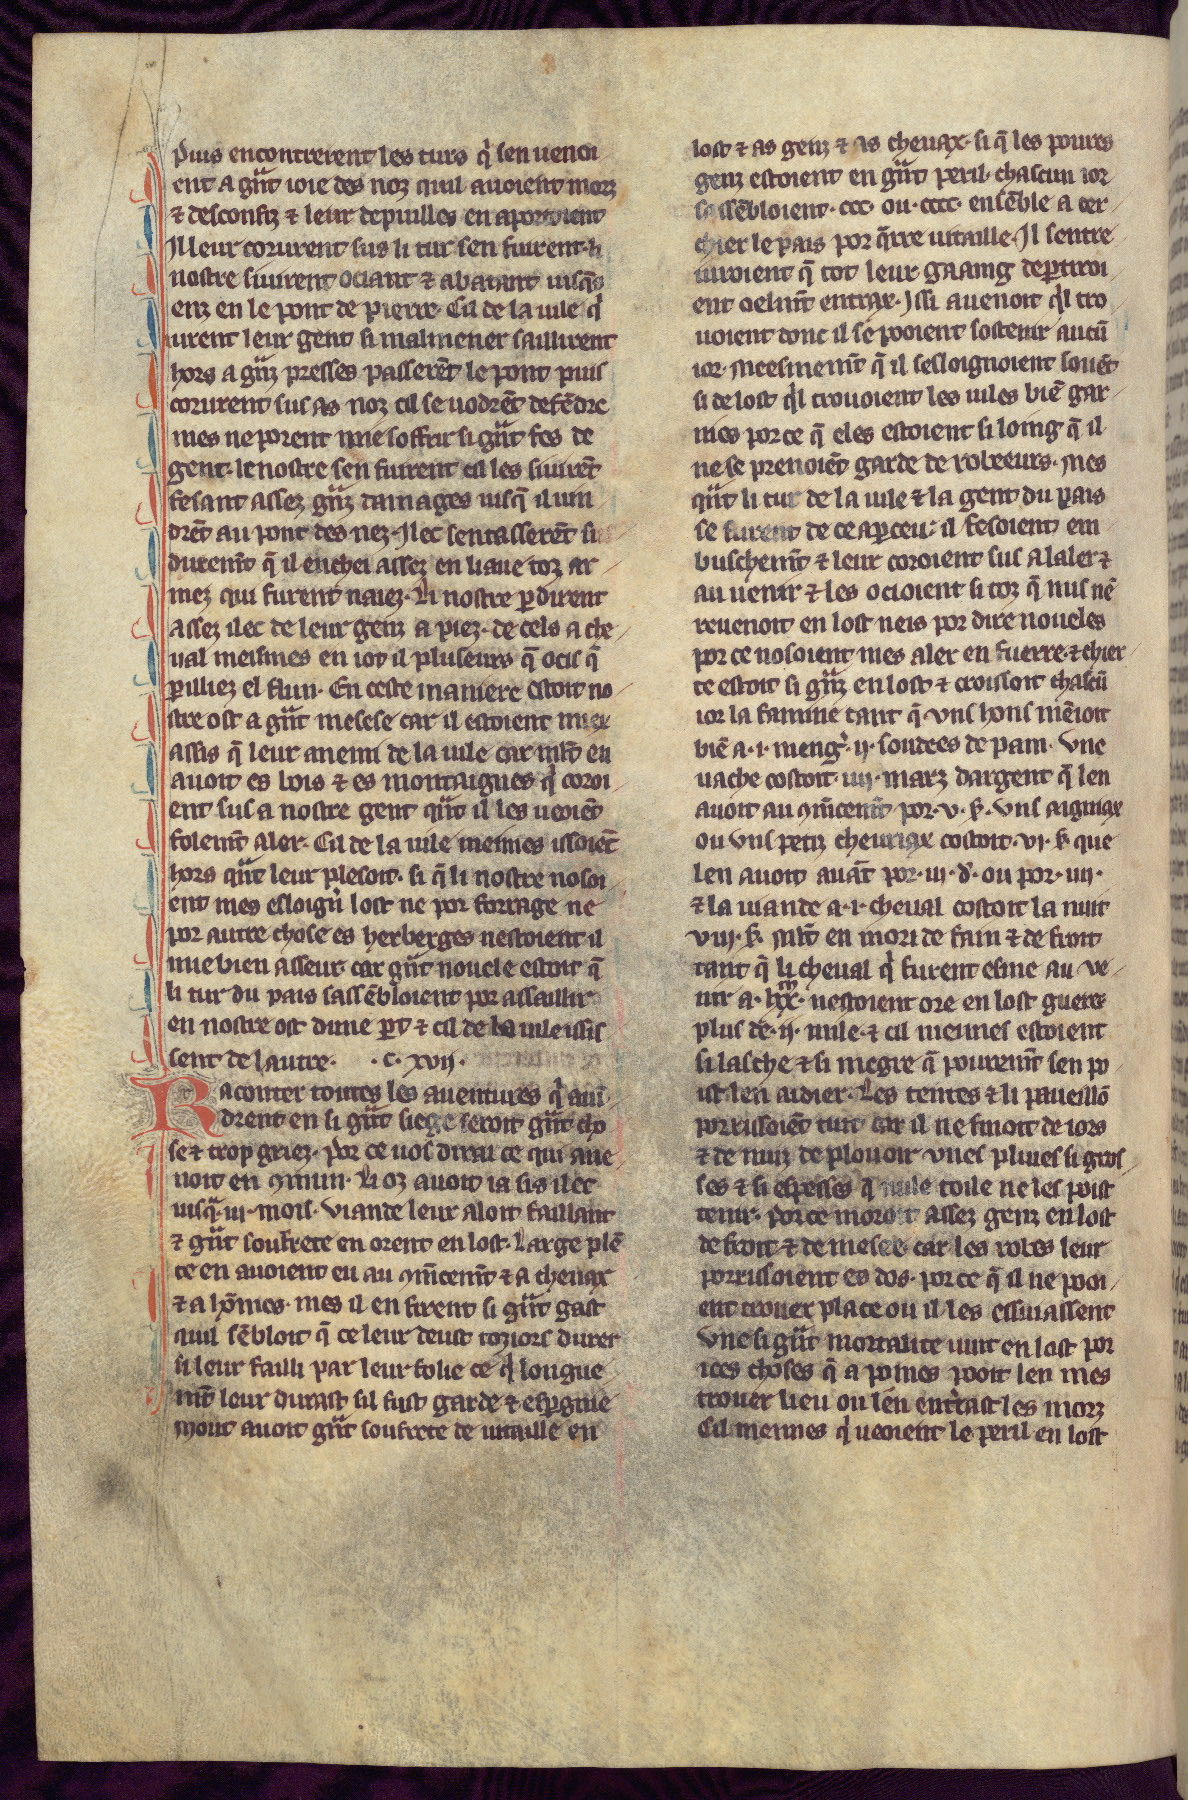 Puis encontrerent les turs q̇ sen uenoi
ent a gñt ioie des noz quil auoient morz
⁊ desconfiz ⁊ leur depuilles en aportoient
Il leur corurent sus li tur sen fuirent· li
nostre siuirent ociant ⁊ abatant iusq̃s
enz en le pont de pierre· Cil de la uile q̇
uirent leur gent si malmener saillirent
hors a gñz presses passerẽt le pont puis
corurent sus as noz cil se uodrẽt defẽdre
mes ne porent mie soffrir si gñt fes de
gent· le nostre sen fuirent cil les siuirẽt
fesant assez gñz damages iusq̃ il uin
drẽt au pont des nez· Ilec sentasserẽt si
durem̃t q̃ il enchei assez en liaue toz ar
mez qui furent naiez· Li nostre ꝑdirent
assez ilec de leur genz a piez· de cels a che
ual meismes en iot il pluseurs q̃ ocis q̃
ꝑilliez el flun· En ceste maniere estoit no
stre ost a gñt mesese car il estoient miex
assis q̃ leur anemi de la uile car ml̃t en
auoit es bois ⁊ es montaignes q̇ coroi
ent sus a nostre gent qñt il les ueoiẽt
folem̃t aler· Cil de la uile meimes issoiẽt
hors qñt leur plesoit· si q̃ li nostre nosoi
ent mes esloign̉ lost ne por forrage ne
por autre chose es herberges nestoient il
mie bien asseur· car gñt nouele estoit q̃
li tur du pais sassẽbloient por assaillir
en nostre ost dune ꝑt ⁊ cil de la uile issis
sent de lautre· ·c· xvij·
Raconter toutes les auentures q̇ auĩ
drent en si gñt siege seroit gñt cho
se ⁊ trop griez· Por ce uos dirai ce qui aue
noit en ꝯmun· Li oz auoit ia sis ilec
iusq̃· iii· mois· Viande leur aloit faillant
⁊ gñt soufrete en orent en lost· Large plẽ
te en auoient eu au ꝯm̃cem̃t ⁊ a cheuax
⁊ a hõmes· mes il en firent si gñt gast
quil sẽbloit q̃ ce leur deust toziors durer
si leur failli par leur folie ce q̇l longue
m̃t leur durast sil fust garde ⁊ espgnie
Mout auoit gñt soufrete de uitaille en
lost ⁊ as genz ⁊ as cheuax· si q̃ les poures
genz estoient en gñt peril· chascun ior
sassẽbloient· ccc· ou· cccc· ensẽble a cer
chier le pais por q̃rre uitaille· Il sentre
iuroient q̃ tot leur gaaing deꝑtiroi
ent oelm̃t entrax· Issi auenoit q̇l tro
uoient dont il se pooient sostenir aucũ
ior· Meesmem̃t q̃ il sesloignoient souẽt
si de lost q̇l trouoient les uiles biẽ gar
nies por ce q̃ eles estoient si loing q̃ il
ne se prenoiẽt garde de robeeurs· Mes
qñt li tur de la uile ⁊ la gent du pais
se furent de ce aꝑceu: il fesoient em
buschem̃t ⁊ leur coroient sus a laler ⁊
au uenir ⁊ les ocioient si toz q̃ nus nẽ
reuenoit en lost neis por dire noueles
por ce nosoient mes aler en fuerre· ⁊ chier
te estoit si gñz en lost ⁊ croissoit chascũ
ior la famine tant q̃ vns hons mẽioit
biẽ a· i· meng̉· ij· soudees de pain· Vne
uache costoit· iiij· marz dargent q̃ len
auoit au ꝯm̃cem̃t por· v· s̃· Vns aigniax
ou vns petiz cheuriax costoit· vi· s̃· que
len auoit auãt por· iii· d̃· ou por· iiii·
⁊ la uiande a· i· cheual costoit la nuit
viij· s̃· Ml̃t en mori de fain ⁊ de froit
tant q̃ li cheual q̇ furent esme au ve
nir a· lxx· m̃ nestoient ore en lost gueres
plus de· ij· mile· ⁊ cil meimes estoient
si lasche ⁊ si megre q̃ pourem̃t sen po
ist len aidier· Les tentes ⁊ li paueillõ
porrissoiẽt tuit car il ne finoit de iors
⁊ de nuiz de plouoir vnes pluies si gros
ses ⁊ si espesses q̃ nule toile ne les poist
tenir· por ce moroit assez genz en lost
de froit ⁊ de mesese car les robes leur
porrissoient es dos· por ce q̃ il ne pooi
ent trouer place ou il les essuiassent
Vne si gñt mortalite uint en lost por
ices choses q̃ a poines pooit len mes
trouer lieu ou len ent̉rast les morz
Cil meimes q̇ ueoient le peril en lost